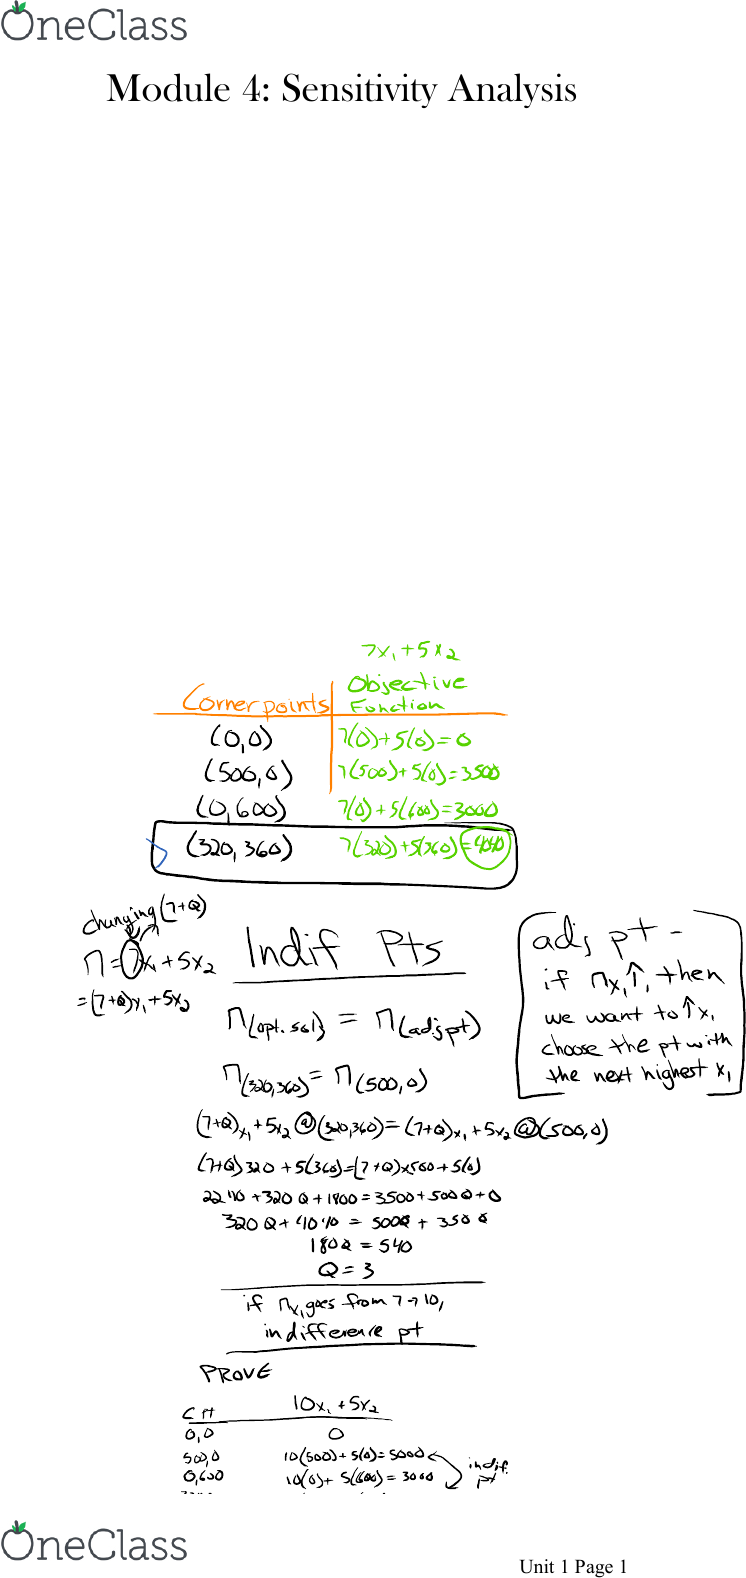 OneClass
Module 4: Sensitivity Analysis
7x₁+5x₂
Corner points Objective Function
(0,0) 7(0)+5(0)=0
(500,0) 7(500)+5(0)=3500
(0,600) 7(0)+5(600)=3000
(320,360) 7(320)+5(360)=4040
changing (7+Q)
Π=7x₁+5x₂
=(7+Q)x₁+5x₂
Indif Pts
Π(opt. sol) = Π(adj pt)
Π(320,360) = Π(500,0)
adj pt -
if Πx₁↑, then
we want to ↑x₁
choose the pt with
the next highest x₁
(7+Q)x₁+5x₂@(320,360)=(7+Q)x₁+5x₂@(500,0)
(7+Q)320+5(360)=(7+Q)x500+5(0)
2240+320Q+1800=3500+500Q+0
320Q+4040=500Q+3500
180Q=540
Q=3
if Πx₁ goes from 7→10,
indifference pt
PROVE
C pt 10x₁+5x₂
0,0 0
500,0 10(500)+5(0)=5000
0,600 10(0)+5(600)=3000
indif. pt
OneClass
Unit 1 Page 1